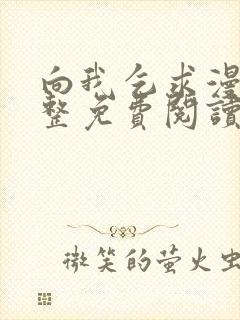 向我乞求漫
整免費閱讀
微笑的萤火虫